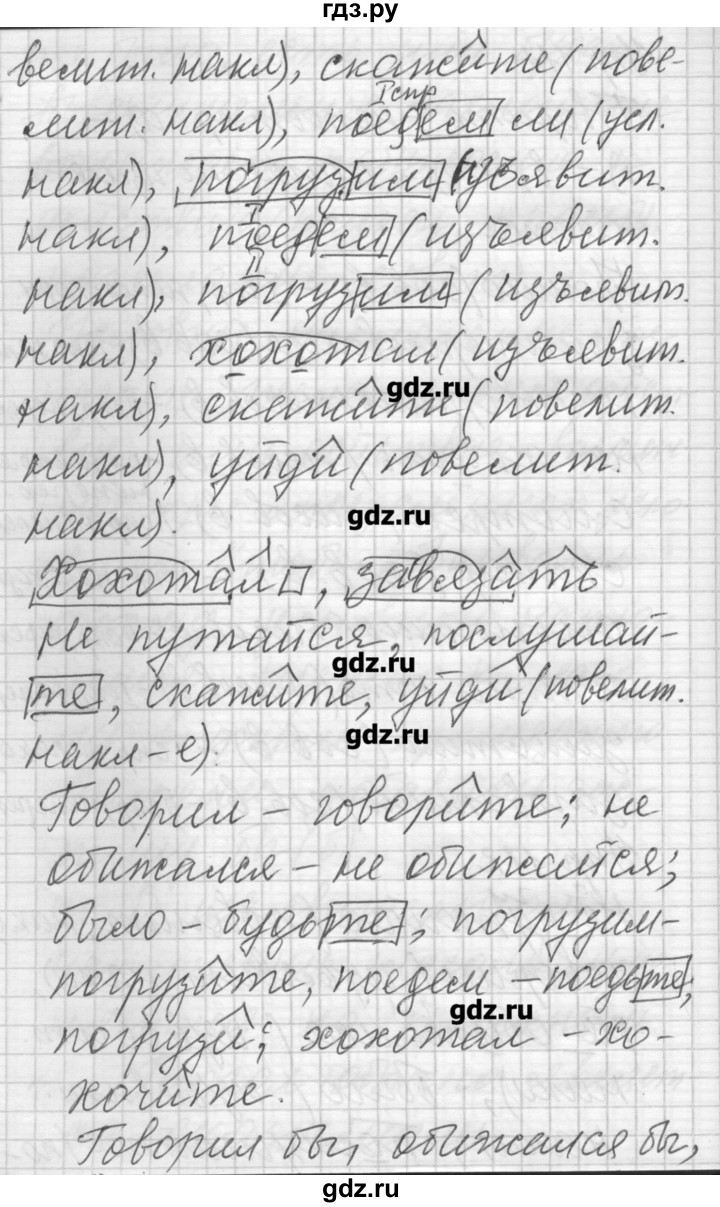 гдз.ру
велит. накл), скажите (пове-
I спр
лит. накл), поедем ли (усл.
накл), погрузим (изъявит.
I
накл), поедем (изъявит.
II
накл), погрузим (изъявит.
накл), хохотал (изъявит.
gdz.ru
накл), скажите (повелит.
накл), уйди (повелит.
gdz.ru
накл).
Хохотал, завязать
Не путайся, послушай-
gdz.ru
те, скажите, уйди (повелит.
gdz.ru
накл-е).
Говорил – говорите; не
обижался – не обижайтся;
было – будьте; погрузим-
погрузите, поедем – поедьте;
gdz.ru
погрузи; хохотал – хо-
хочите.
Говорил бы, обижался бы,
gdz.ru